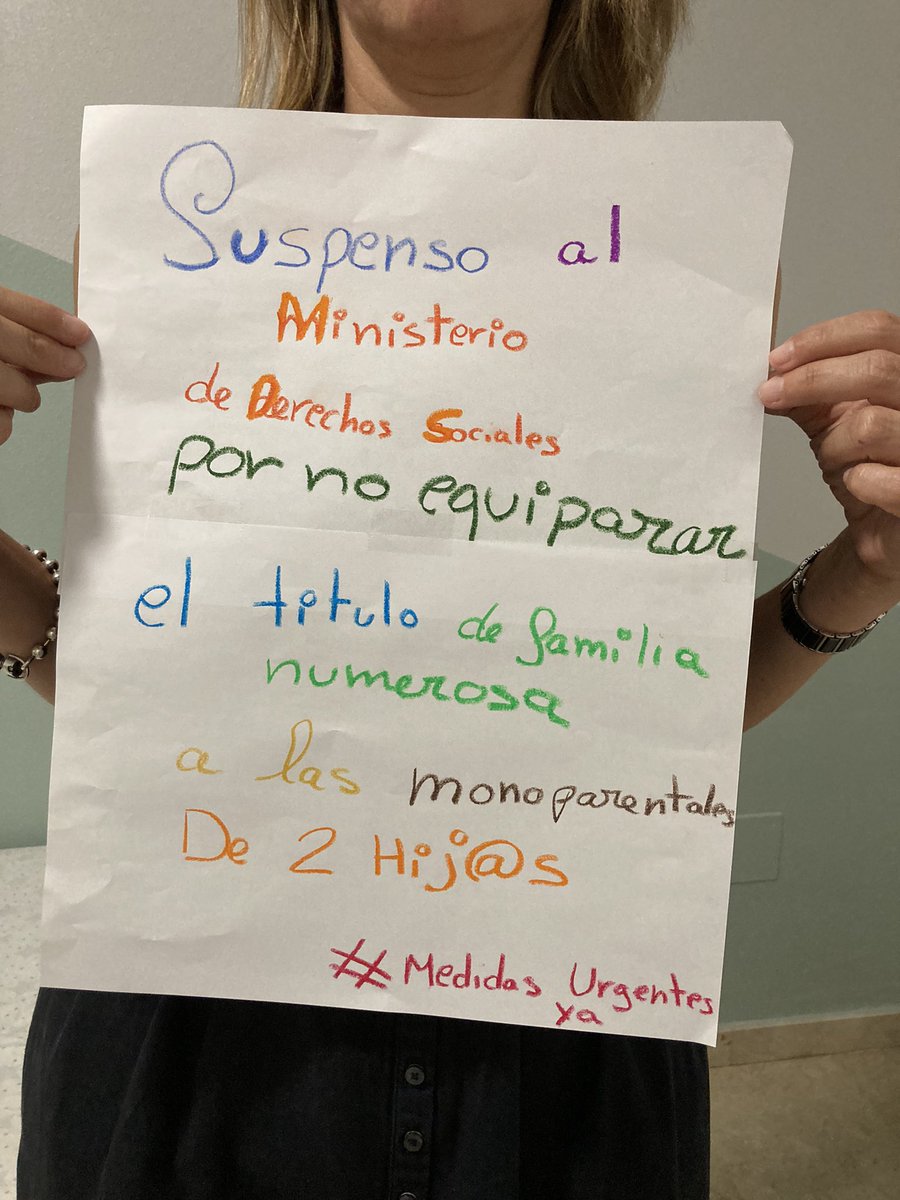 Suspenso al
Ministerio
de Derechos Sociales
por no equiparar
el titulo de familia
numerosa
a las monoparentales
De 2 Hij@s
#Medidas Urgentes
ya